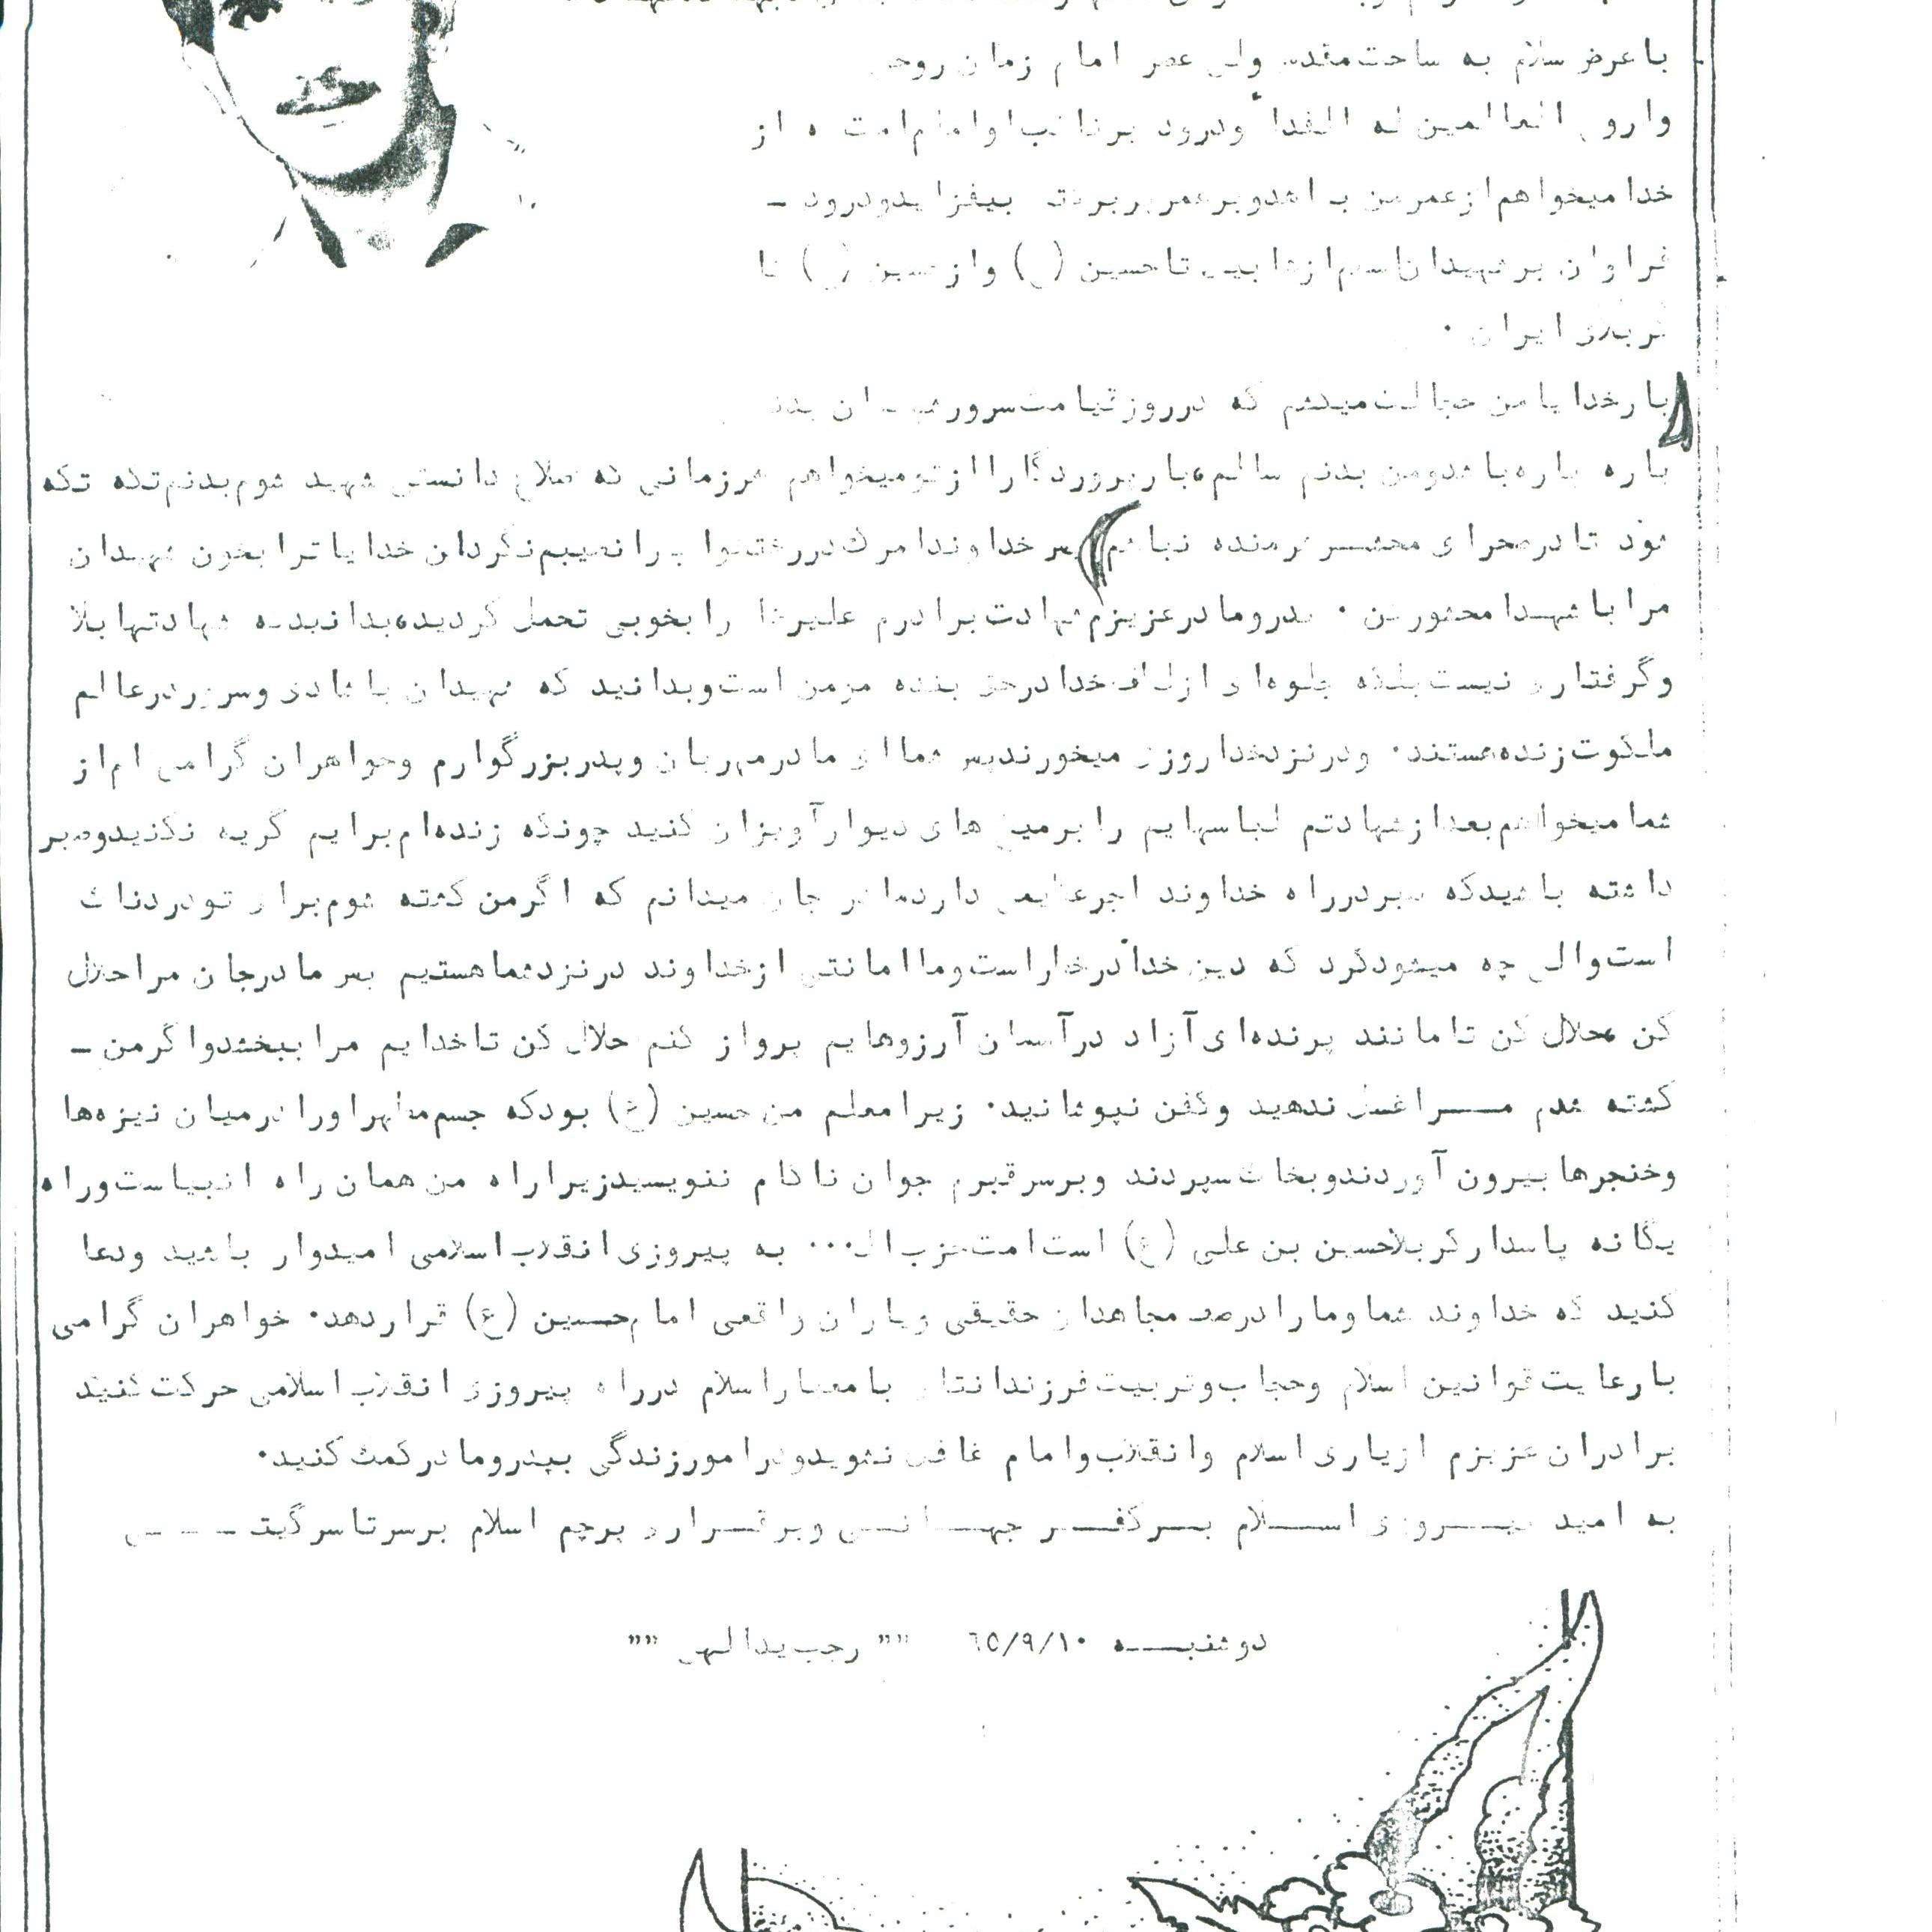 با عرض سلام به ساحت مقدس ولی عصر امام زمان روحی
وارواح العالمین له الفدا ودرود برنائب اوامام امت ه از
خدا میخواهم ازعمر من بـاشدوبرعمر بیفزایدودرود -
فراوان برشهیدان تاحسین ( ) وازحسین ( ) تا
کربلای ایران .
بارخدایا من خجالت میکشم که درروزقیامت سرور
پاره پاره باشدومن بدنم سالم،بارپروردگارا ازتومیخواهم هرزمانی که صلاح دانستی شهید شوم بدنم تکه تکه
شود تا درصحرای محشـر شرمنده نباشم پس خداوندا مرگ دررختخواب را نصیبم نگردان خدایا ترا بخون شهیدان
مرا با شهـدا محشورکن . پدروما درعزیزم شهادت برادرم علیرضا را بخوبی تحمل کردید،بدانیدکه شهادتها بلا
وگرفتاری نیست بلکه جلوه ای ازلطف خدادرحق بنده مومن است وبدانید که شهیدان با شادی وسروردرعالم
ملکوت زنده هستند. ودرنزدخداروزی میخورندپس شما ای ما درمهربان وپدربزرگوارم وخواهران گرامی ام از
شما میخواهم بعدازشهادتم لباسهایم را برمیخ های دیوارآویزان کنید چونکه زنده ام برایم گریه نکنیدوصبر
داشته باشیدکه صبردرراه خداوند اجرعظیمی داردمادر جان میدانم که اگرمن کشته شوم برای تودردناک
است والی چه میشودکرد که دین خدا درخطراست وما امانتی ازخداوند درنزدشماهستیم پس مادرجان مراحلال
کن محلال کن تا مانند پرنده ای آزاد درآسمان آرزوهایم پرواز کنم حلال کن تاخدایم مرا ببخشدواگرمن -
کشته شدم مـــرا غسل ندهید وکفن نپوشانید. زیرا معلم من حسین (ع) بودکه جسم مطهر اورا درمیان نیزه ها
وخنجرها بیرون آوردندوبخاک سپردند وبرسرقبرم جوان ناکام ننویسیدزیراراه من همان راه انبیاست وراه
یگانه پاسدارکربلاحسین بن علی (ع) است امت حزب الـ... به پیروزی انقلاب اسلامی امیدوار باشید ودعا
کنید که خداوند شما ومارا درصف مجاهدان حقیقی ویاران واقعی امام حسین (ع) قراردهد. خواهران گرامی
با رعایت قوانین اسلام وحجاب وتربیت فرزندانتان با معیاراسلام درراه پیروزی انقلاب اسلامی حرکت کنید
برادران عزیزم ازیاری اسلام وانقلاب وامام غافل نشویدودرامورزندگی بپدرومادرکمک کنید.
به امید پیـــروزی اســـلام بـــرکفـــر جهـــانـــی وبرقـــراری پرچم اسلام برسرتاسرگیتـ - - ـی
دوشنبـــه ٦٥/٩/١٠ "" رجب یدالهی ""